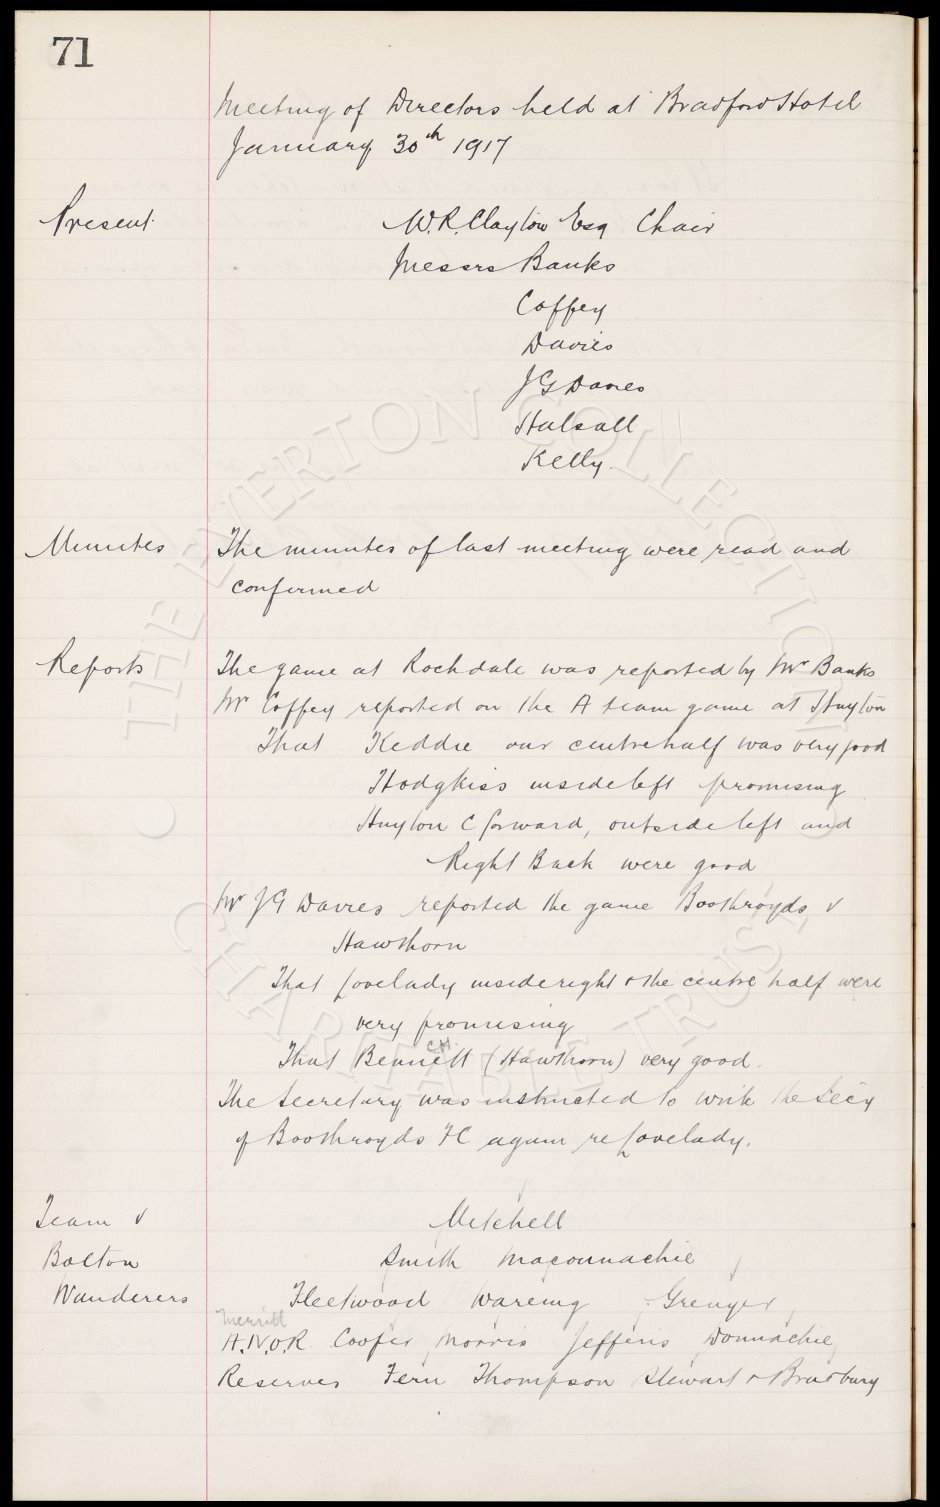 71
Meeting of Directors held at Bradford Hotel
January 30th 1917
Present W.R. Clayton Esq Chair
Messrs Banks
Coffey
Davies
J G Davies
Halsall
Kelly.
Minutes The minutes of last meeting were read and
confirmed
Reports The game at Rochdale was reported by Mr Banks
Mr Coffey reported on the A team game at Huyton
That Keddie our centre half was very good
Hodgkiss inside left promising
Huyton C forward, outside left and
Right Back were good
Mr J G Davies reported the game Boothroyds v
Hawthorn
That Lovelady inside right & the centre half were
very promising
C.H.
That Bennett (Hawthorn) very good.
The Secretary was instructed to write the Secy
of Boothroyds FC again re Lovelady.
Team v Mitchell
Bolton Smith Maconnachie
Wanderers Fleetwood Wareing Grenyer
Merrill
A.N.O.R. Cooper Morris Jefferis Donnachie
Reserves Fern Thompson Stewart & Bradbury
THE EVERTON COLLECTION
CHARITABLE TRUST